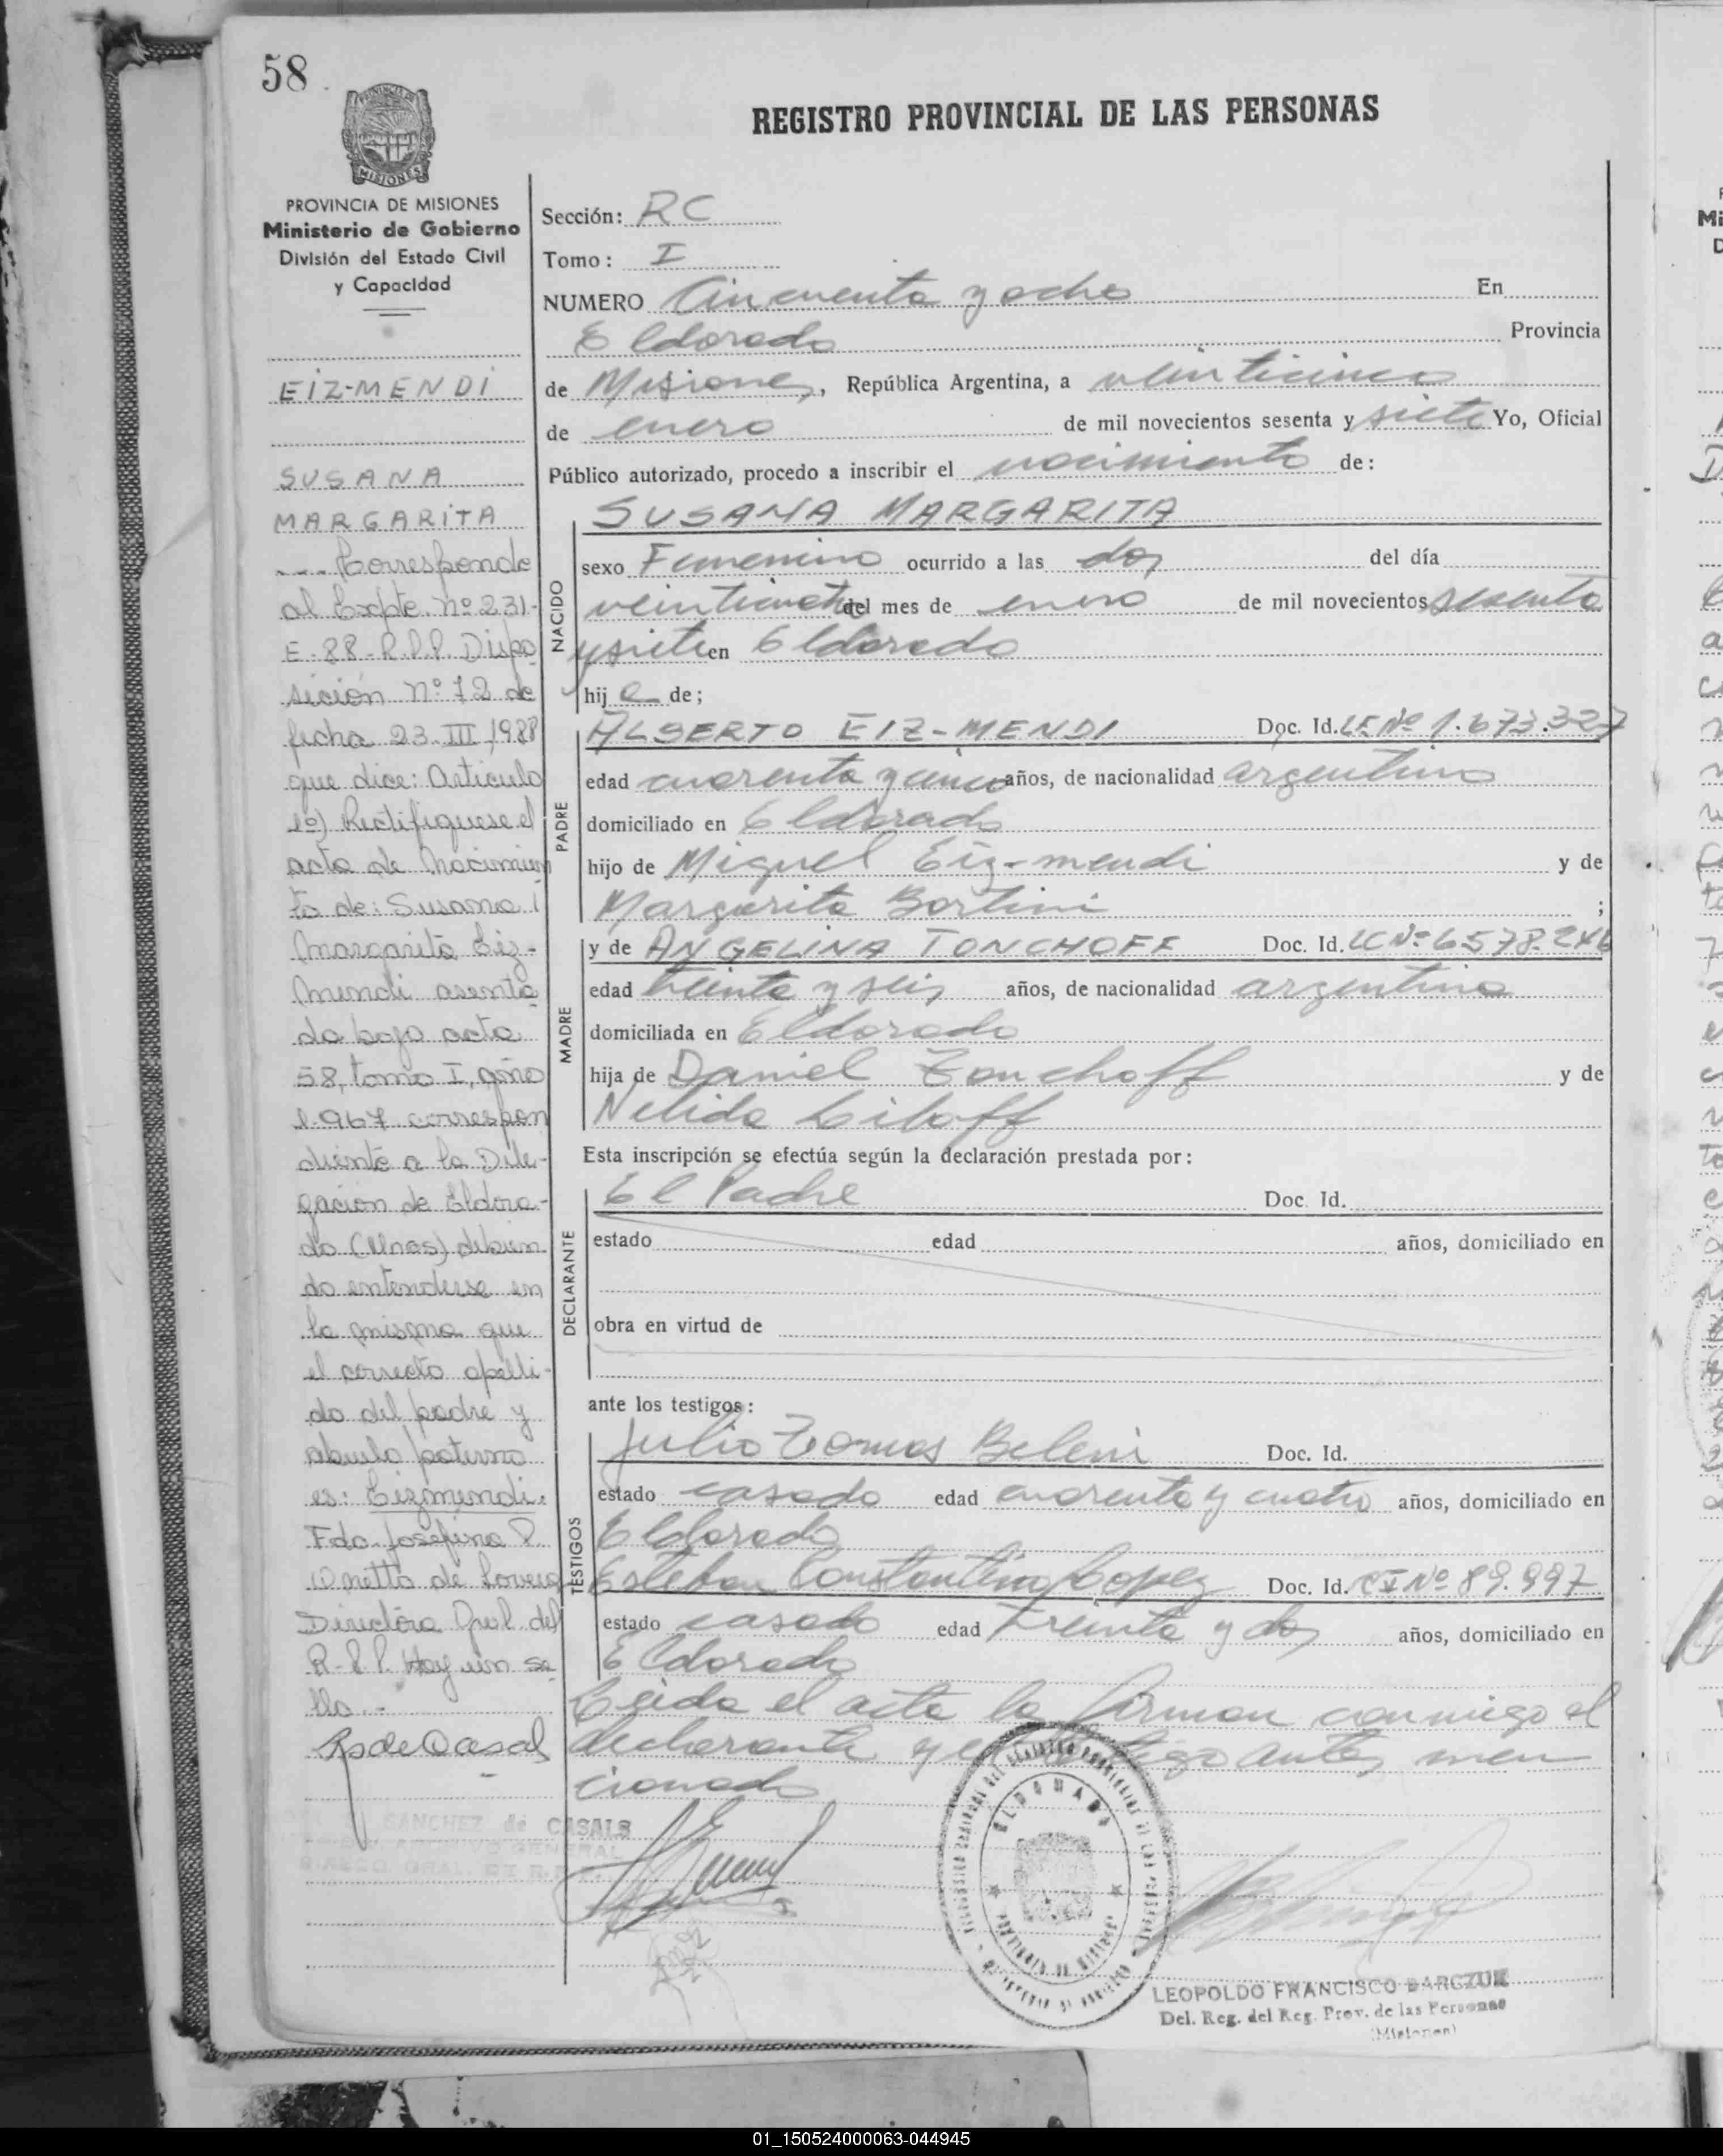 58
REGISTRO PROVINCIAL DE LAS PERSONAS
PROVINCIA DE MISIONES
PROVINCIA DE MISIONES
Ministerio de Gobierno
División del Estado Civil
y Capacidad
EIZ-MENDI
SUSANA
MARGARITA
---- Corresponde
al Expte. Nº 231-
E-88-R.P.P. Dispo
sición Nº 72 de
fecha 23-III-1988
que dice: Artículo
1º) Rectifíquese el
acta de Nacimien
to de: Susana
Margarita Eiz-
Mendi asenta
da bajo acta
58, tomo I, año
1.967 correspon
diente a la Dele-
gación de Eldora-
do (Mnes) debien
do entenderse en
la misma que
el correcto apelli-
do del padre y
abuelo paterno
es: Eizmendi.
Fdo. Josefina P.
Onetto de
Directora Gral. del
R.P.P. Hay un se
llo.-
SANCHEZ de CASALS
ARCHIVO GENERAL
Sección: RC
Tomo: I
NUMERO Cincuenta y ocho En
Eldorado Provincia
de Misiones, República Argentina, a veinticinco
de enero de mil novecientos sesenta y siete Yo, Oficial
Público autorizado, procedo a inscribir el nacimiento de:
NACIDO
SUSANA MARGARITA
sexo Femenino ocurrido a las dos del día
del mes de enero de mil novecientos sesenta
y siete en Eldorado
hij a de;
PADRE
ALBERTO EIZ-MENDI Doc. Id. LE Nº 1.673.327
edad cuarenta y cinco años, de nacionalidad argentino
domiciliado en Eldorado
hijo de Miguel Eiz-mendi y de
Margarita Bortini ;
MADRE
y de ANGELINA TONCHOFF Doc. Id. LC Nº 6.578.246
edad treinta y seis años, de nacionalidad argentina
domiciliada en Eldorado
hija de Daniel Tonchoff y de
Nelida Liloff
Esta inscripción se efectúa según la declaración prestada por:
DECLARANTE
El Padre Doc. Id.
estado edad años, domiciliado en
obra en virtud de
ante los testigos:
TESTIGOS
Julio Tomas Beleni Doc. Id.
estado casado edad cuarenta y cuatro años, domiciliado en
Eldorado
Esteban Constantino Lopez Doc. Id. CI Nº 89.997
estado casado edad Treinta y dos años, domiciliado en
Eldorado
Leida el acta la firman conmigo el
declarante y antes men
cionado
ELDORADO
LEOPOLDO FRANCISCO BARCZUK
Del. Reg. del Reg. Prov. de las Personas
(Misiones)
01_150524000063-044945